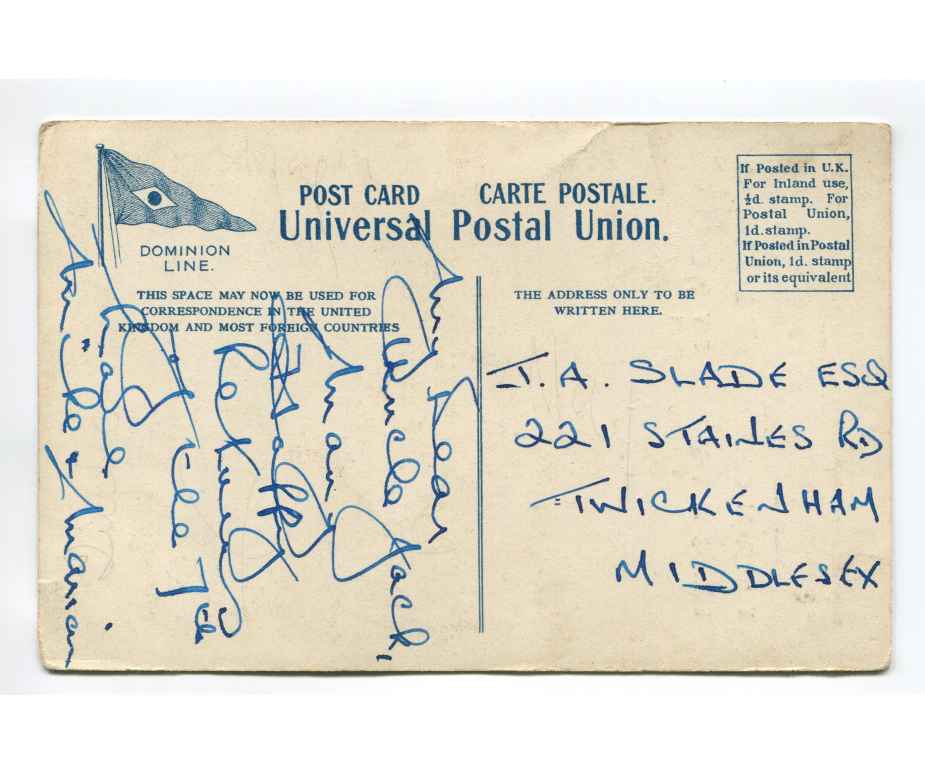 DOMINION
LINE.
POST CARD CARTE POSTALE.
Universal Postal Union.
If Posted in U.K.
For Inland use,
½d. stamp. For
Postal Union,
1d. stamp.
If Posted in Postal
Union, 1d. stamp
or its equivalent
THIS SPACE MAY NOW BE USED FOR
CORRESPONDENCE IN THE UNITED
KINGDOM AND MOST FOREIGN COUNTRIES
THE ADDRESS ONLY TO BE
WRITTEN HERE.
My Dear
Uncle Jack,
Many
Happy
Returns
for the 7th
& Marian
J.A. SLADE ESQ
221 STAINES RD
TWICKENHAM
MIDDLESEX